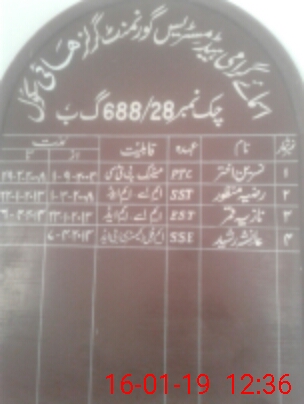 اسمائے گرامی ہیڈ مسٹریس گورنمنٹ گرلز ھائی سکول
چک نمبر 688/28 گ ب
نمبر شمار نام عہدہ قابلیت مدت
از تا
۱ نسرین اختر PTC میٹرک پی ٹی سی ۱-۹-۲۰۰۳
۲ رضیہ منظور SST ایم اے ایم ایڈ ۱-۳-۲۰۰۹ ۲۲-۱-۲۰۱۳
۳ نازیہ قمر EST ایم اے ایم ایڈ ۲۲-۱-۲۰۱۳
۴ عائشہ رشید SSE
16-01-19 12:36